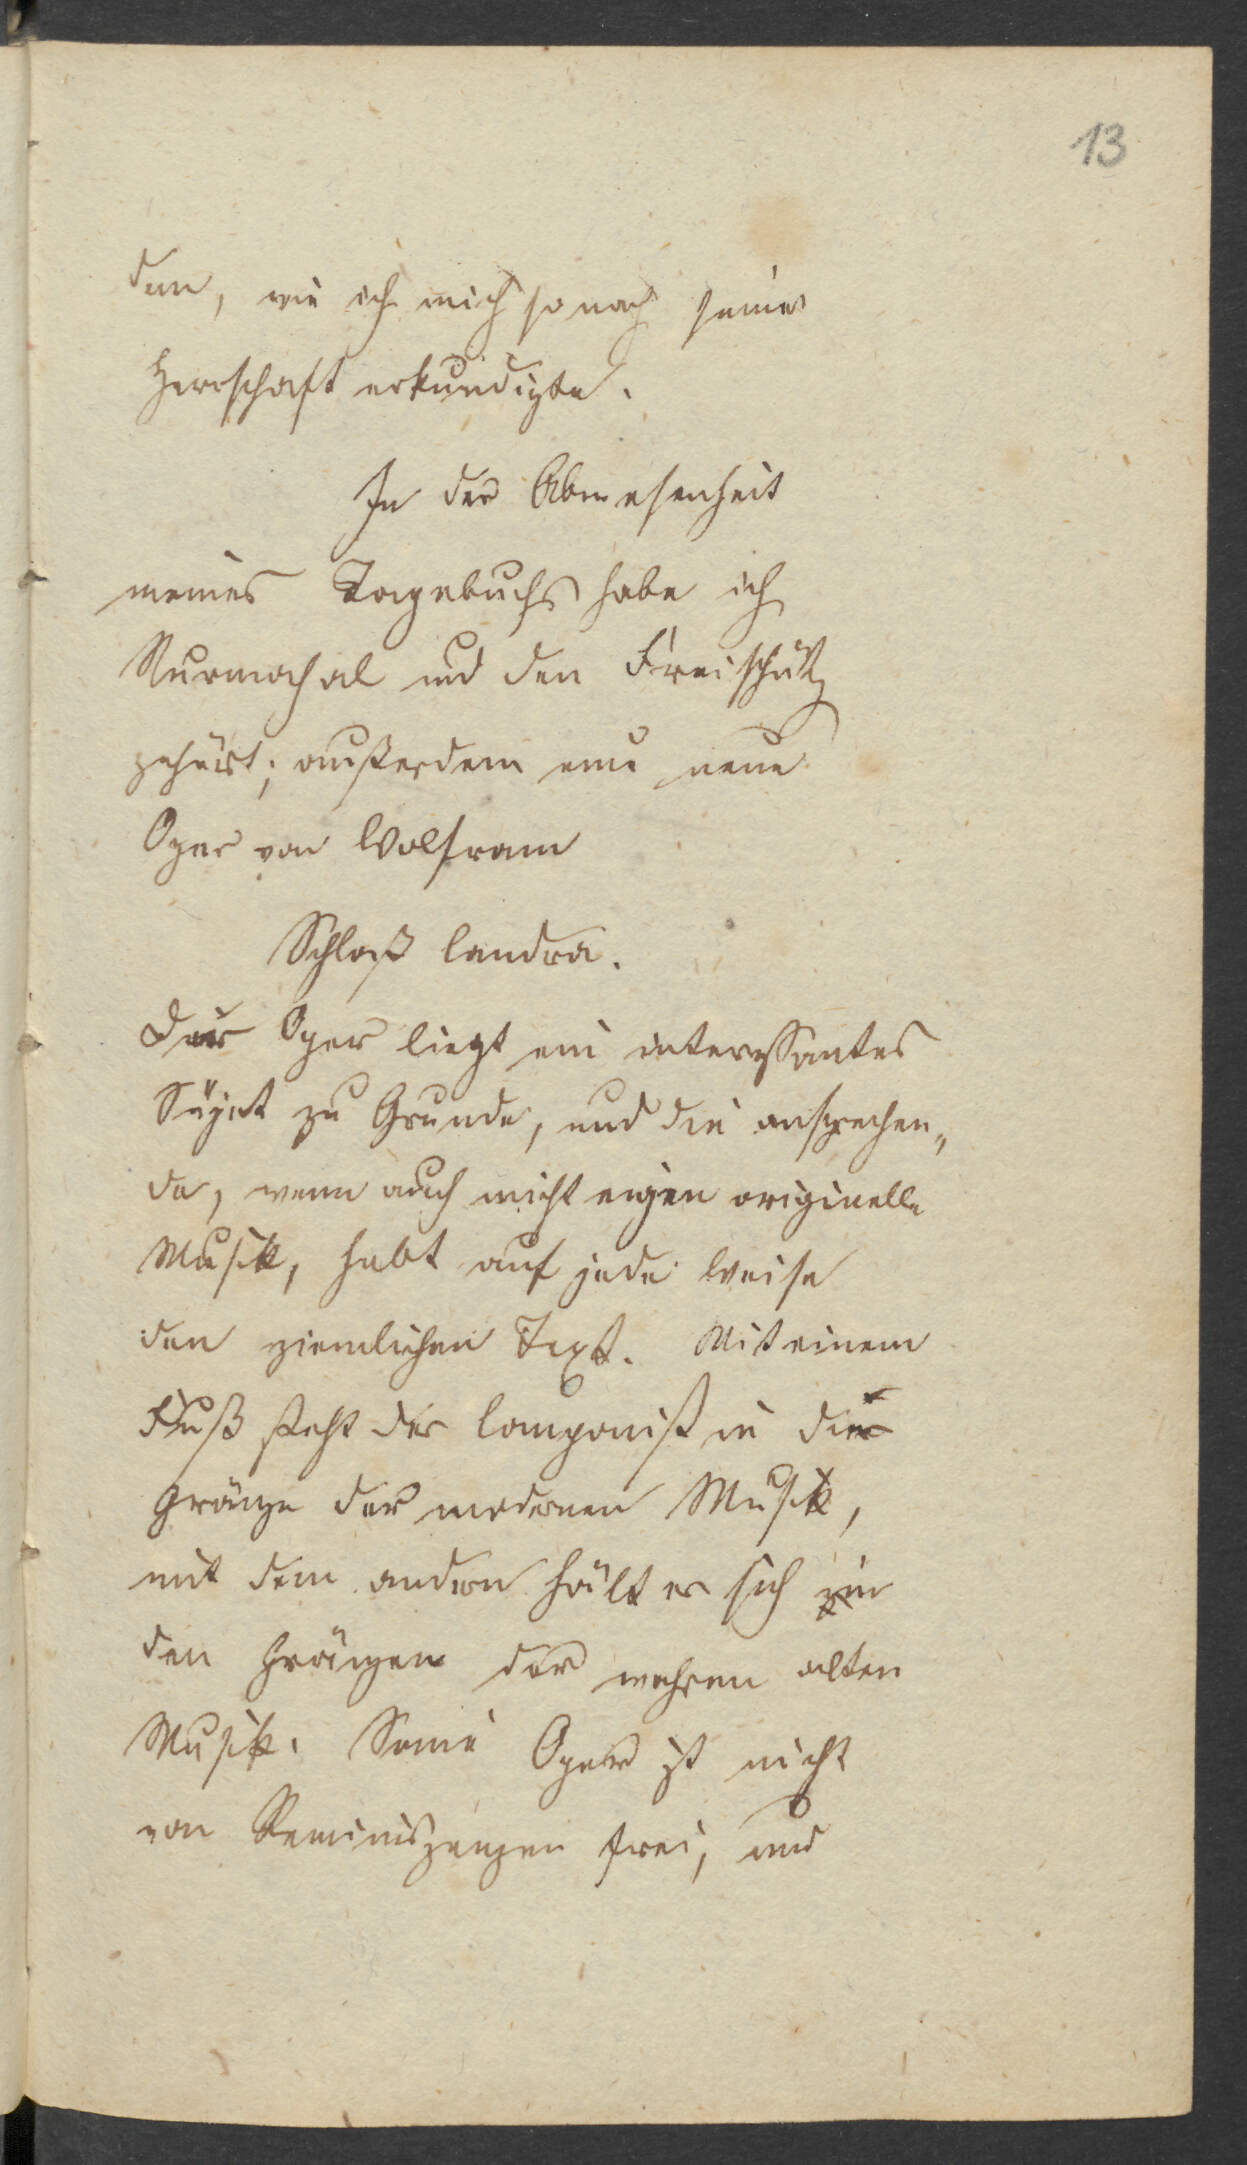 13
den, wie ich mich so nach seiner
Herrschaft erkundigte.
In der Abwesenheit
meines Tagebuchs habe ich
Nurmahal und den Freischütz
gehört; außerdem eine neue
Oper von Wolfram
Schloß Candra.
Der Oper liegt ein interessantes
Süjet zu Grunde, und die ansprechen„
de, wenn auch nicht eigen originelle
Musik, hebt auf jede Weise
den ziemlichen Text. Mit einem
Fuß steht der Componist in die
Gränze der modernen Musik,
mit dem andern hält er sich in
den Gränzen der wahren alten
Musik. Seine Oper ist nicht
von Reminiszenzen frei, und